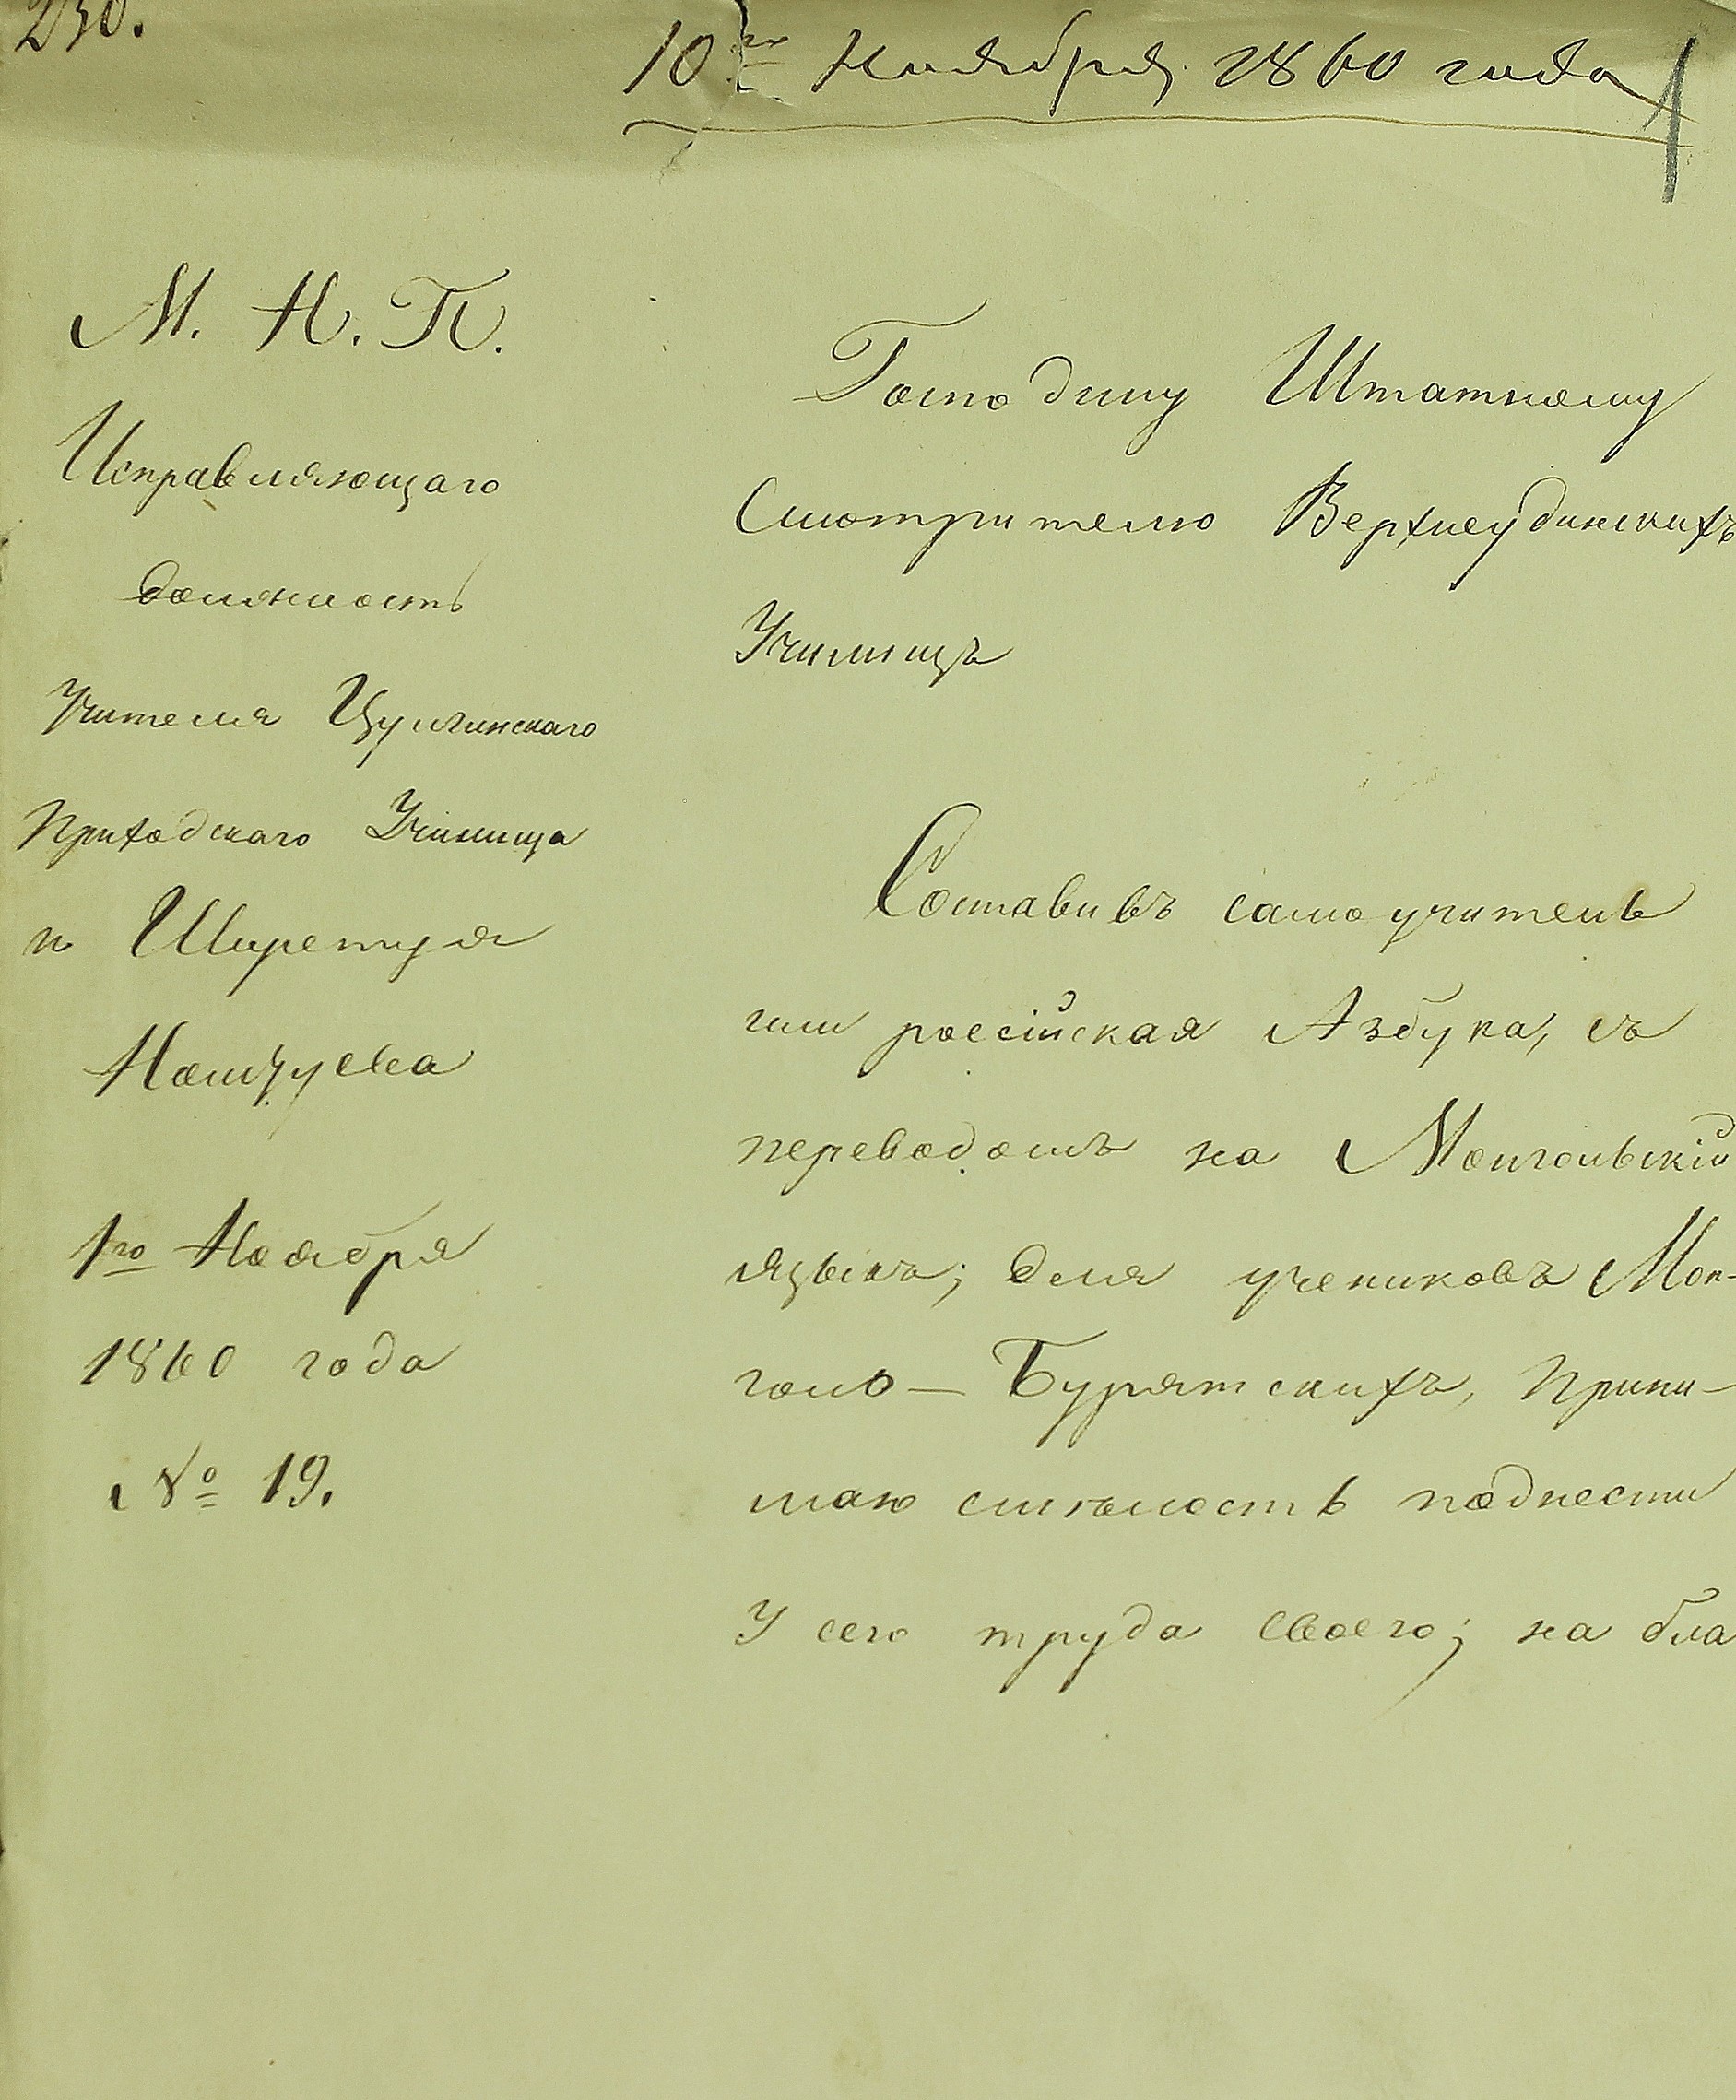 230.
10го Ноября 1860 года
1
М. Н. П.
Исправляющаго
должность
Учителя Цулгинскаго
Приходскаго Училища
и Ширетуя
Номчуева
1го Ноября
1860 года
№ 19.
Господину Штатному
Смотрителю Верхнеудинскихъ
Училищъ
Составивъ самоучитель
или россійская Азбука, съ
переводомъ на Монгольскій
языкъ; для учениковъ Мон-
голо- Бурятскихъ, прини-
маю смѣлость поднести
У сего труда своего; на бла